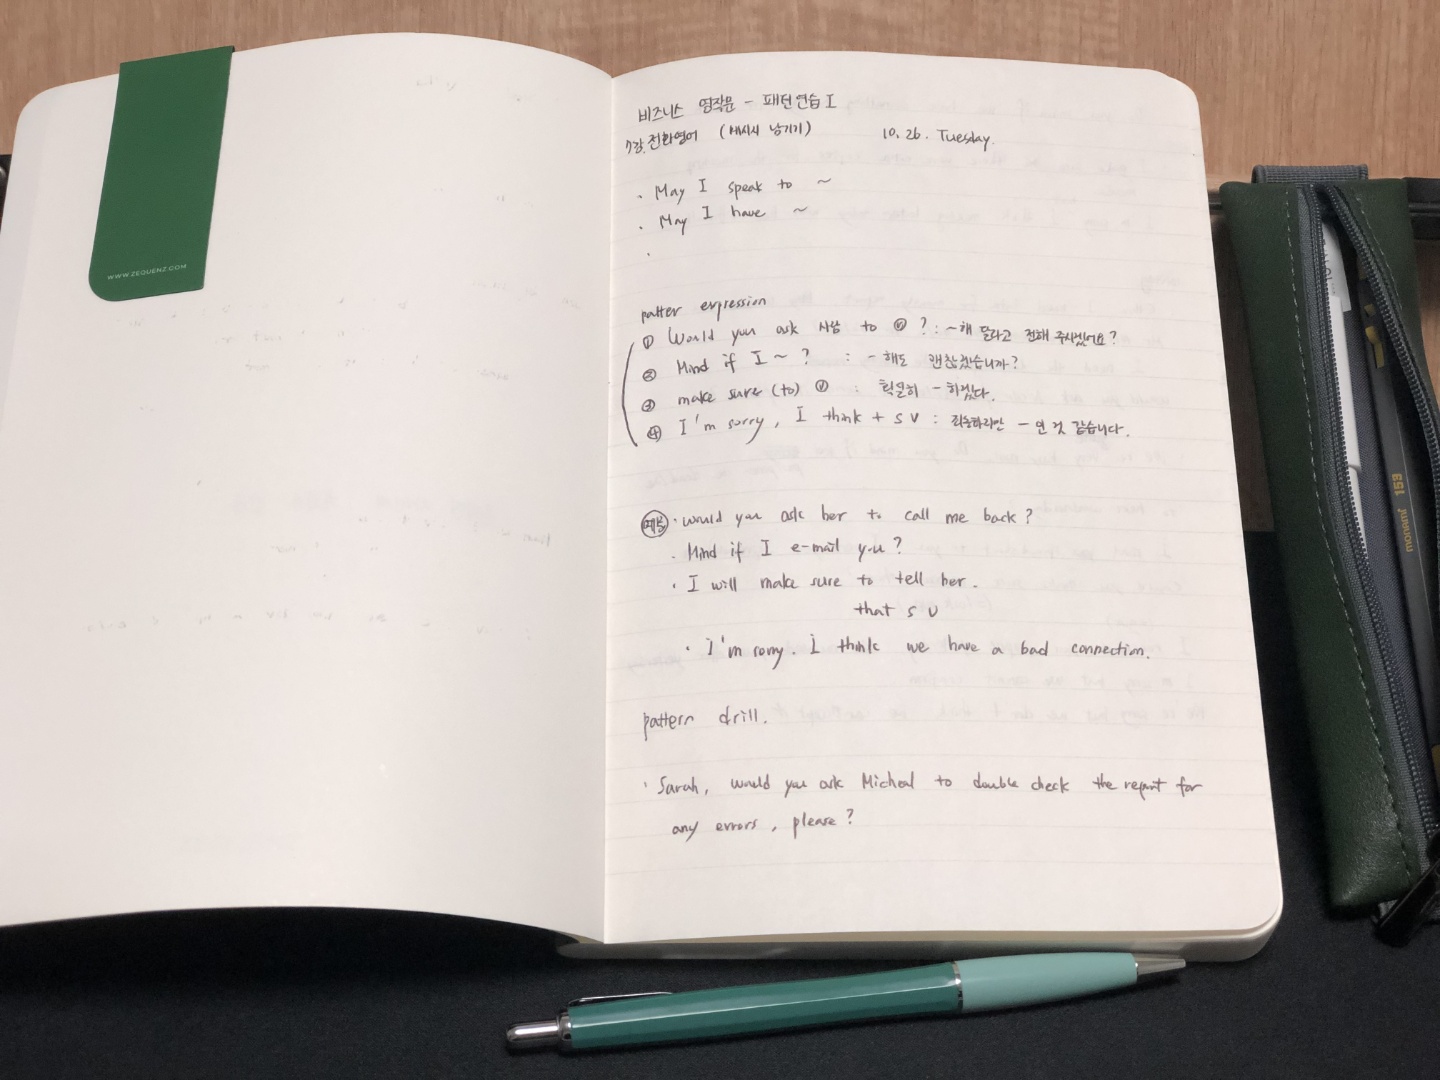 WWW.ZEQUENZ.COM
비즈니스 영작문 - 패턴연습 I
7강. 전화영어 (메시지 남기기) 10. 26. Tuesday.
· May I speak to ~
· May I have ~
·
patter expression
① Would you ask 사람 to ⓥ ? : ~해 달라고 전해 주시겠어요?
② Mind if I ~ ? : - 해도 괜찮겠습니까?
③ make sure (to) ⓥ : 확실히 - 하겠다.
④ I'm sorry, I think + S V : 죄송하지만 - 인 것 같습니다.
· would you ask her to call me back?
· Mind if I e-mail you?
· I will make sure to tell her.
that S V
· I'm sorry. I think we have a bad connection.
pattern drill.
· Sarah, would you ask Micheal to double check the report for
any errors, please?
monami 153